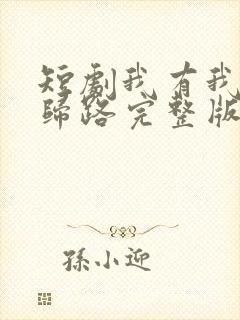 短劇我有我
歸路完整版
孫小迎